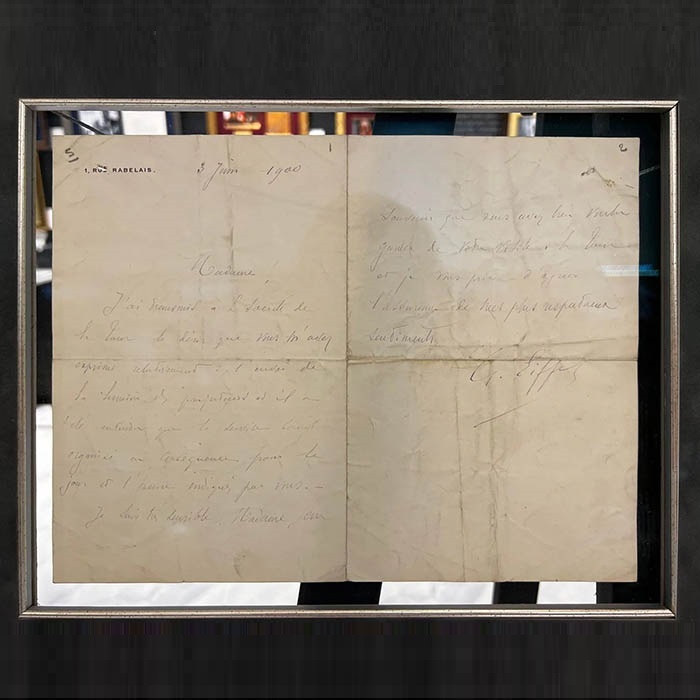 1
1, RUE RABELAIS.
3 Juin 1900
Madame,
J'ai transmis à la Société de
la Tour le désir que vous m'avez
exprimé relativement à l'
la lumière des projecteurs et il a
été entendu que le service serait
organisé en conséquence pour le
jour et l'heure indiqués par vous. -
Je suis très sensible, Madame, au
2
souvenir que vous avez bien voulu
garder de votre visite à la Tour
et je vous prie d'agréer
l'assurance de mes plus respectueux
sentiments
G. Eiffel